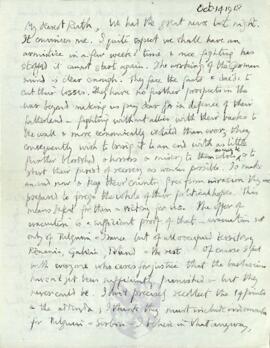 Oct 14 1918
My dearest Ruth, We had the great news last night.
It convinces me. I quite expect we shall have an
armistice in a few weeks' time & once fighting has
stopped it cannot start again. The working of the German
mind is clear enough. They face the facts & decide to
cut their losses. They have no further prospects in the
war beyond making us pay dear for a defence of their
fatherland – fighting without allies with their backs to
the wall & more economically isolated than ever; they
consequently wish to bring it to an end with as little
further bloodshed & horrors & misery to themselves, & to
start their period of recovery as soon as possible. To make
an end now & keep their country free from invasion they are
prepared to forego the whole of their political hopes. This
means defeat for them & victory for us. The offer of
evacuation is a sufficient proof of that – evacuation not
only of Belgium & France but of all occupied territory
Romania, Galicia, Poland & the rest. Of course I feel
with everyone who cares for justice that the barbarians
have not been sufficiently punished – but they
never could be. I don't precisely recollect the 14 points
& the addenda; I think they must include indemnities
for Belgium & Serbia in that any way,